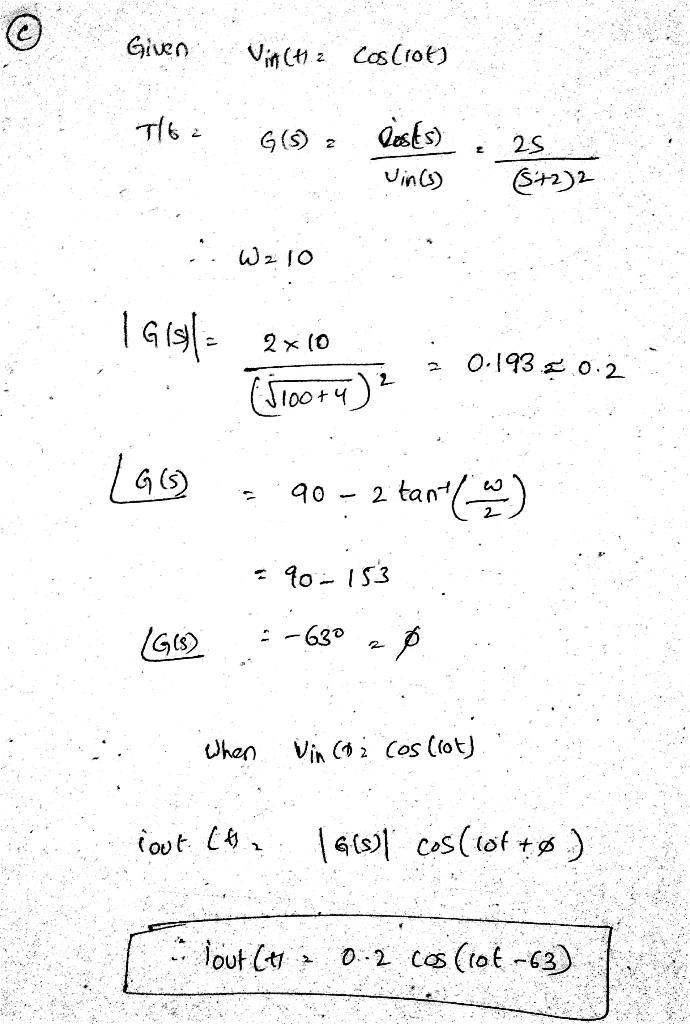 (c)
Given Vin(t) = Cos(10t)
T/f = G(s) = Iout(s) / Vin(s) = 2S / (S+2)2
∴ W=10
|G(s)| = 2×10 / (√100+4)² = 0.193 ≈ 0.2
∠G(s) = 90 - 2 tan⁻¹(ω/2)
= 90 - 153
∠G(s) = -63° = ϕ
When Vin(t) = Cos(10t)
iout(t) = |G(s)| cos(10t + ϕ)
∴ iout(t) = 0.2 cos(10t - 63)